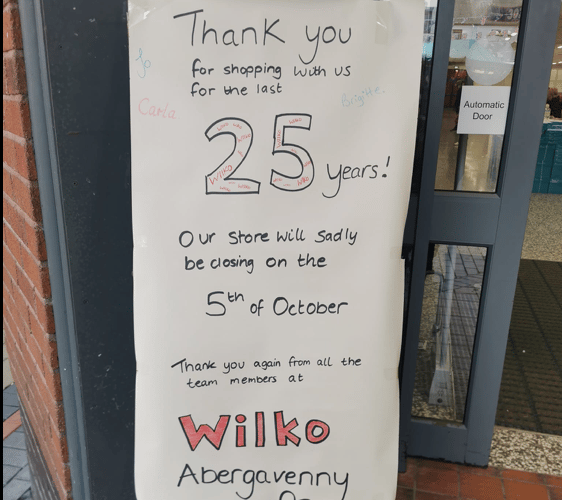 Thank you
for shopping with us
for the last
Jo
Carla
Brigitte.
25 years!
Wilko
Our store will sadly
be closing on the
5th of October
Thank you again from all the
team members at
Wilko
Abergavenny
Automatic
Door